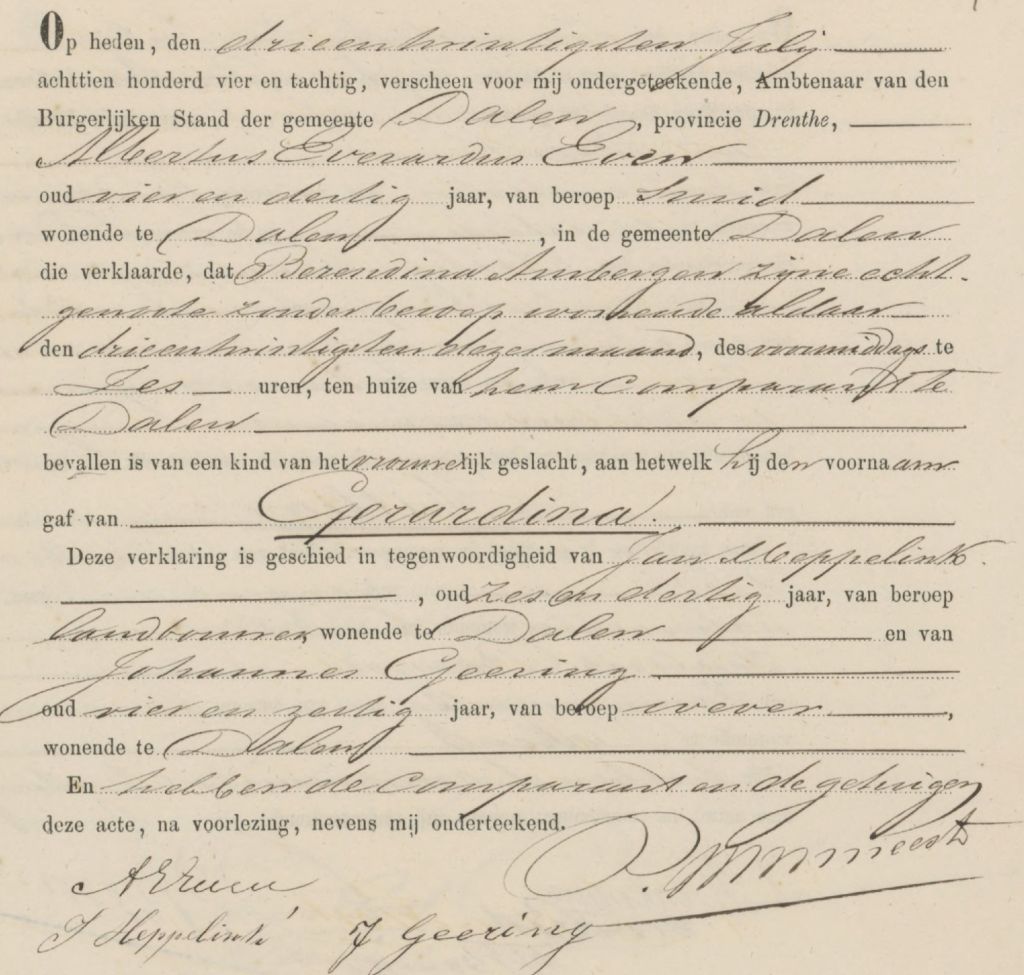 Op heden, den drieentwintigsten Julij
achttien honderd vier en tachtig, verscheen voor mij ondergeteekende, Ambtenaar van den
Burgerlijken Stand der gemeente Dalen, provincie Drenthe,
Albertus Everardus Even
oud vier en dertig jaar, van beroep smid
wonende te Dalen, in de gemeente Dalen
die verklaarde, dat Berendina Ambergen zijne echt-
genoote zonder beroep wonende aldaar
den drieentwintigsten dezer maand, des voormiddags te
Zes uren, ten huize van hem Comparant te
Dalen
bevallen is van een kind van het vrouwelijk geslacht, aan hetwelk hij den voornaam
gaf van Gerardina.
Deze verklaring is geschied in tegenwoordigheid van Jan Heppelink.
, oud zes en dertig jaar, van beroep
landbouwer, wonende te Dalen en van
Johannes Geering
oud vier en zestig jaar, van beroep wever,
wonende te Dalen
En hebben de Comparant en de getuigen
deze acte, na voorlezing, nevens mij onderteekend.
A E Even
J Heppelink
J Geering